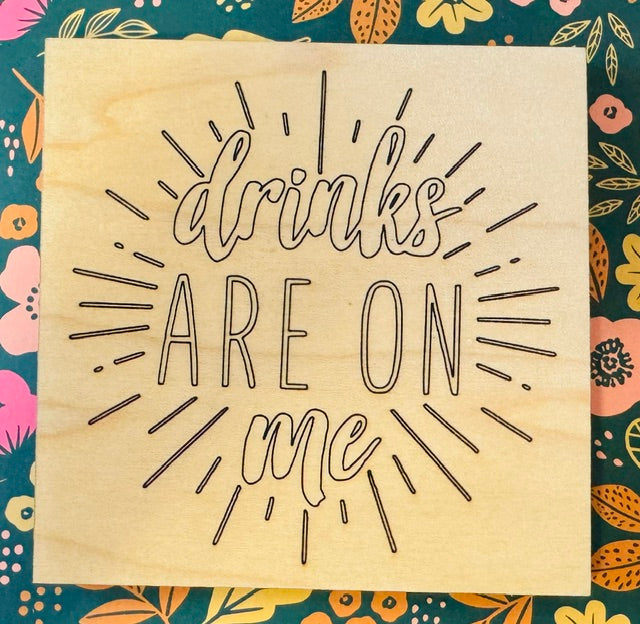 drinks
ARE ON
me